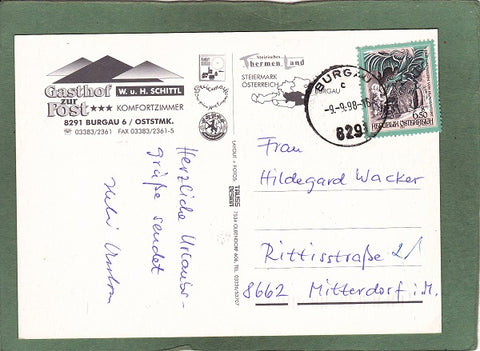 Gasthof
zur
Post
W. u. H. SCHITTL
★★★ KOMFORTZIMMER
8291 BURGAU 6 / OSTSTMK.
☏ 03383/2361 FAX 03383/2361-5
Steirisches
Thermen Land
STEIERMARK
ÖSTERREICH
BURGAU
BURGAU
c
-9.-9.98-16
8291
6.50
REPUBLIK ÖSTERREICH
Herzliche Urlaubs-
grüße sendet
LAYOUT + FOTOS:
Frau
Hildegard Wacker
Rittisstraße 21
8662 Mitterdorf i. M.